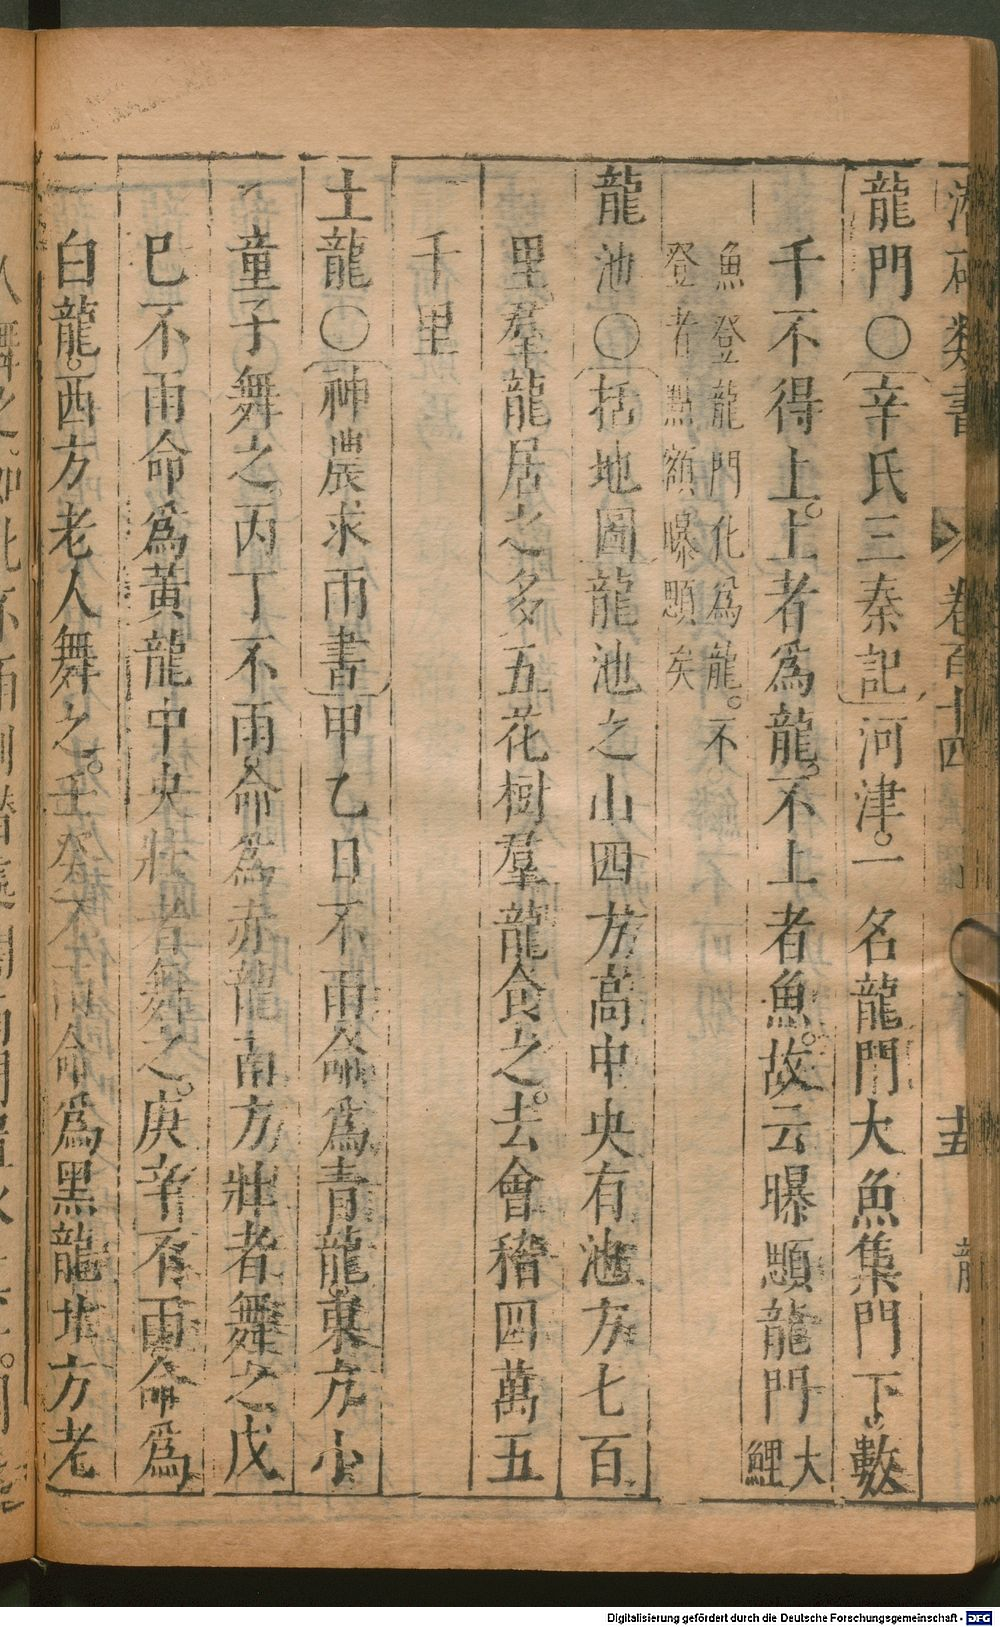 類書 卷百十四 十五 龍
龍門〇辛氏三秦記河津。一名龍門大魚集門下數
千不得上。上者爲龍。不上者魚。故云曝顋龍門大鯉
魚登龍門化爲龍。不
登者點額曝顋矣
龍池〇括地圖龍池之山四方高中央有池方七百
里羣龍居之多五花樹羣龍食之。去會稽四萬五
千里
土龍〇神農求雨書甲乙日不雨命爲青龍東方小
童子舞之。丙丁不雨命爲赤龍南方壯者舞之戊
巳不雨命爲黃龍中央壯者舞之。庚辛不雨命爲
白龍。西方老人舞之。壬癸不雨命爲黑龍北方老
Digitalisierung gefördert durch die Deutsche Forschungsgemeinschaft - DFG